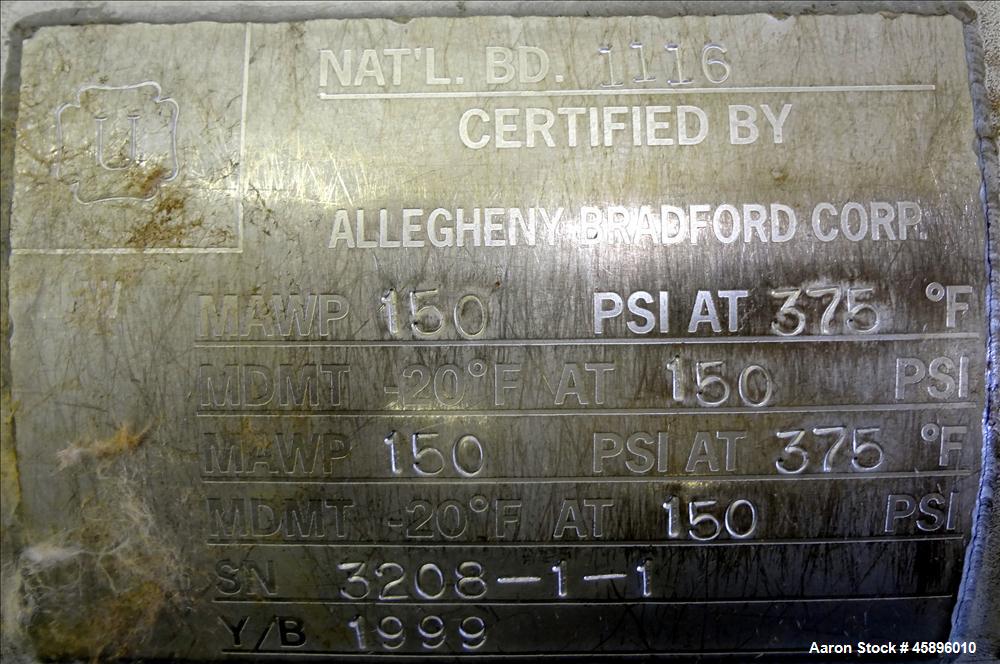 NAT'L. BD. 1116
U
CERTIFIED BY
ALLEGHENY BRADFORD CORP.
MAWP 150 PSI AT 375 °F
MDMT -20°F AT 150 PSI
MAWP 150 PSI AT 375 °F
MDMT -20°F AT 150 PSI
SN 3208-1-1
Y/B 1999
Aaron Stock # 45896010